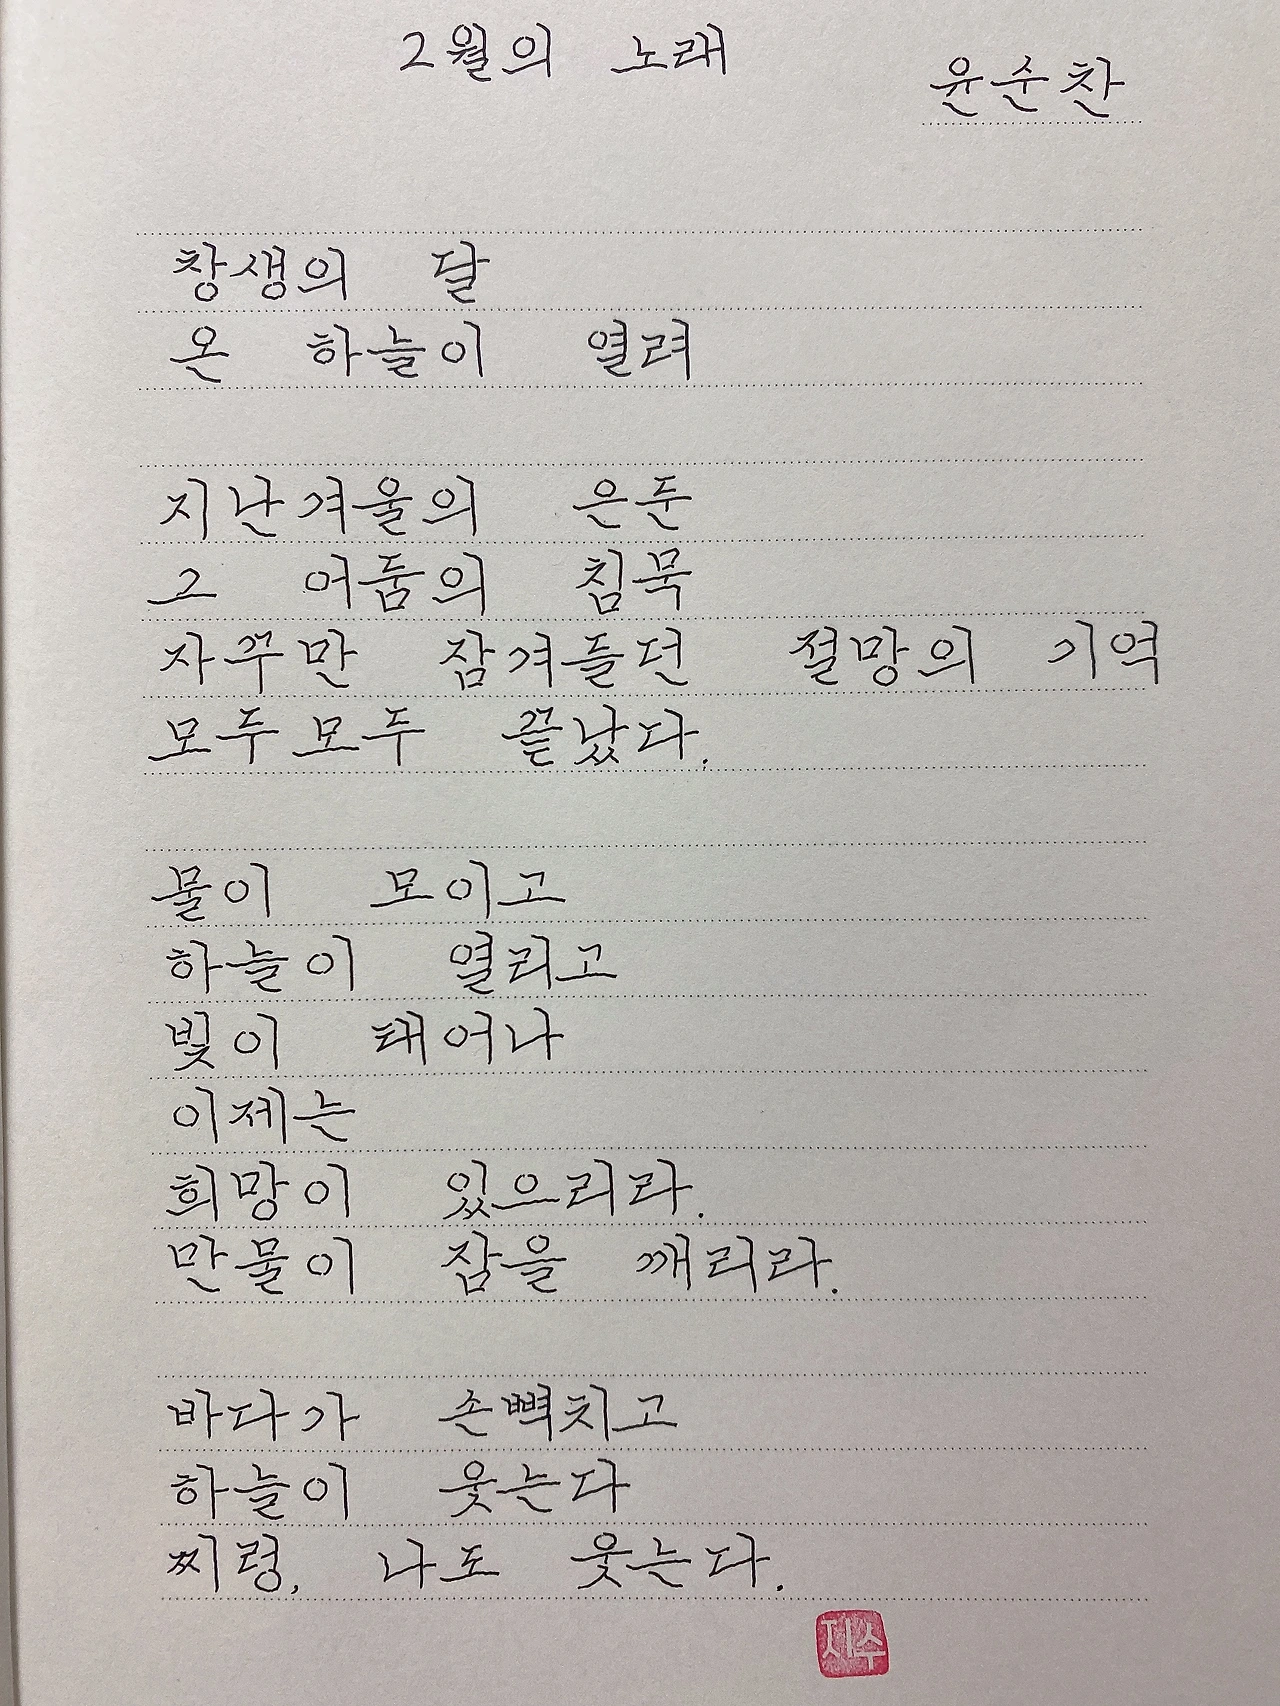 2월의 노래
윤순찬
창생의 달
온 하늘이 열려
지난겨울의 은둔
그 어둠의 침묵
자꾸만 잠겨들던 절망의 기억
모두모두 끝났다.
물이 모이고
하늘이 열리고
빛이 태어나
이제는
희망이 있으리라.
만물이 잠을 깨리라.
바다가 손뼉치고
하늘이 웃는다
찌령, 나도 웃는다.
지수